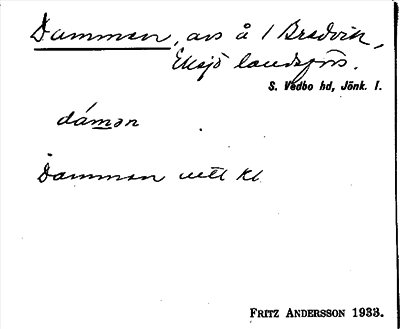 Dammen, avs å 1 Bredvik,
Eksjö landsförs.
S. Vedbo hd, Jönk. l.
dámən
Dammen utt kl
FRITZ ANDERSSON 1933.